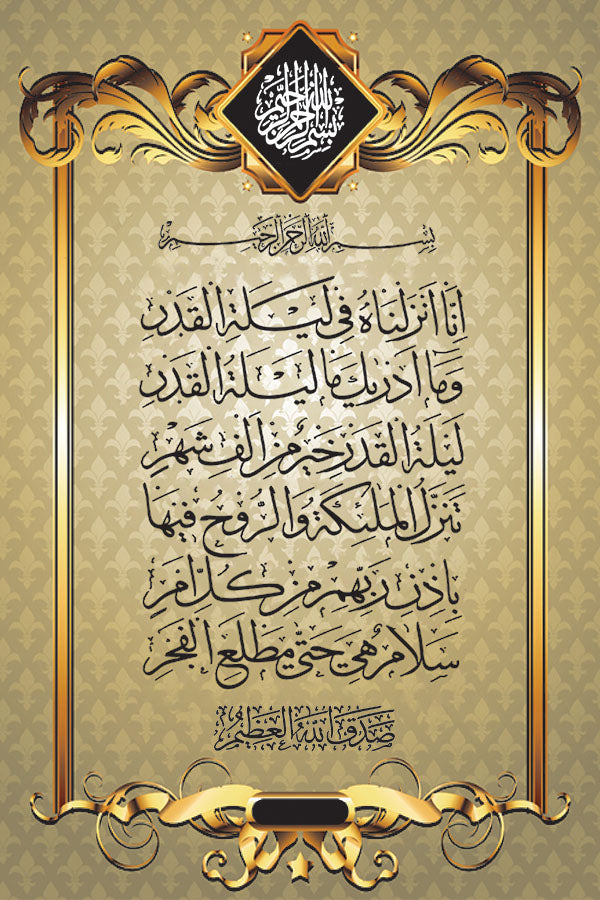 بسم الله الرحمن الرحيم
بِسْمِ اللّٰهِ الرَّحْمٰنِ الرَّحِيمِ
اِنَّا اَنْزَلْنَاهُ فِى لَيْلَةِ الْقَدْرِ
وَمَا اَدْرٰيكَ مَا لَيْلَةُ الْقَدْرِ
لَيْلَةُ الْقَدْرِ خَيْرٌ مِنْ اَلْفِ شَهْرٍ
تَنَزَّلُ الْمَلٰئِكَةُ وَالرُّوحُ فِيهَا
بِاِذْنِ رَبِّهِمْ مِنْ كُلِّ اَمْرٍ
سَلَامٌ هِىَ حَتّٰى مَطْلَعِ الْفَجْرِ
صَدَقَ اللّٰهُ الْعَظِيمُ